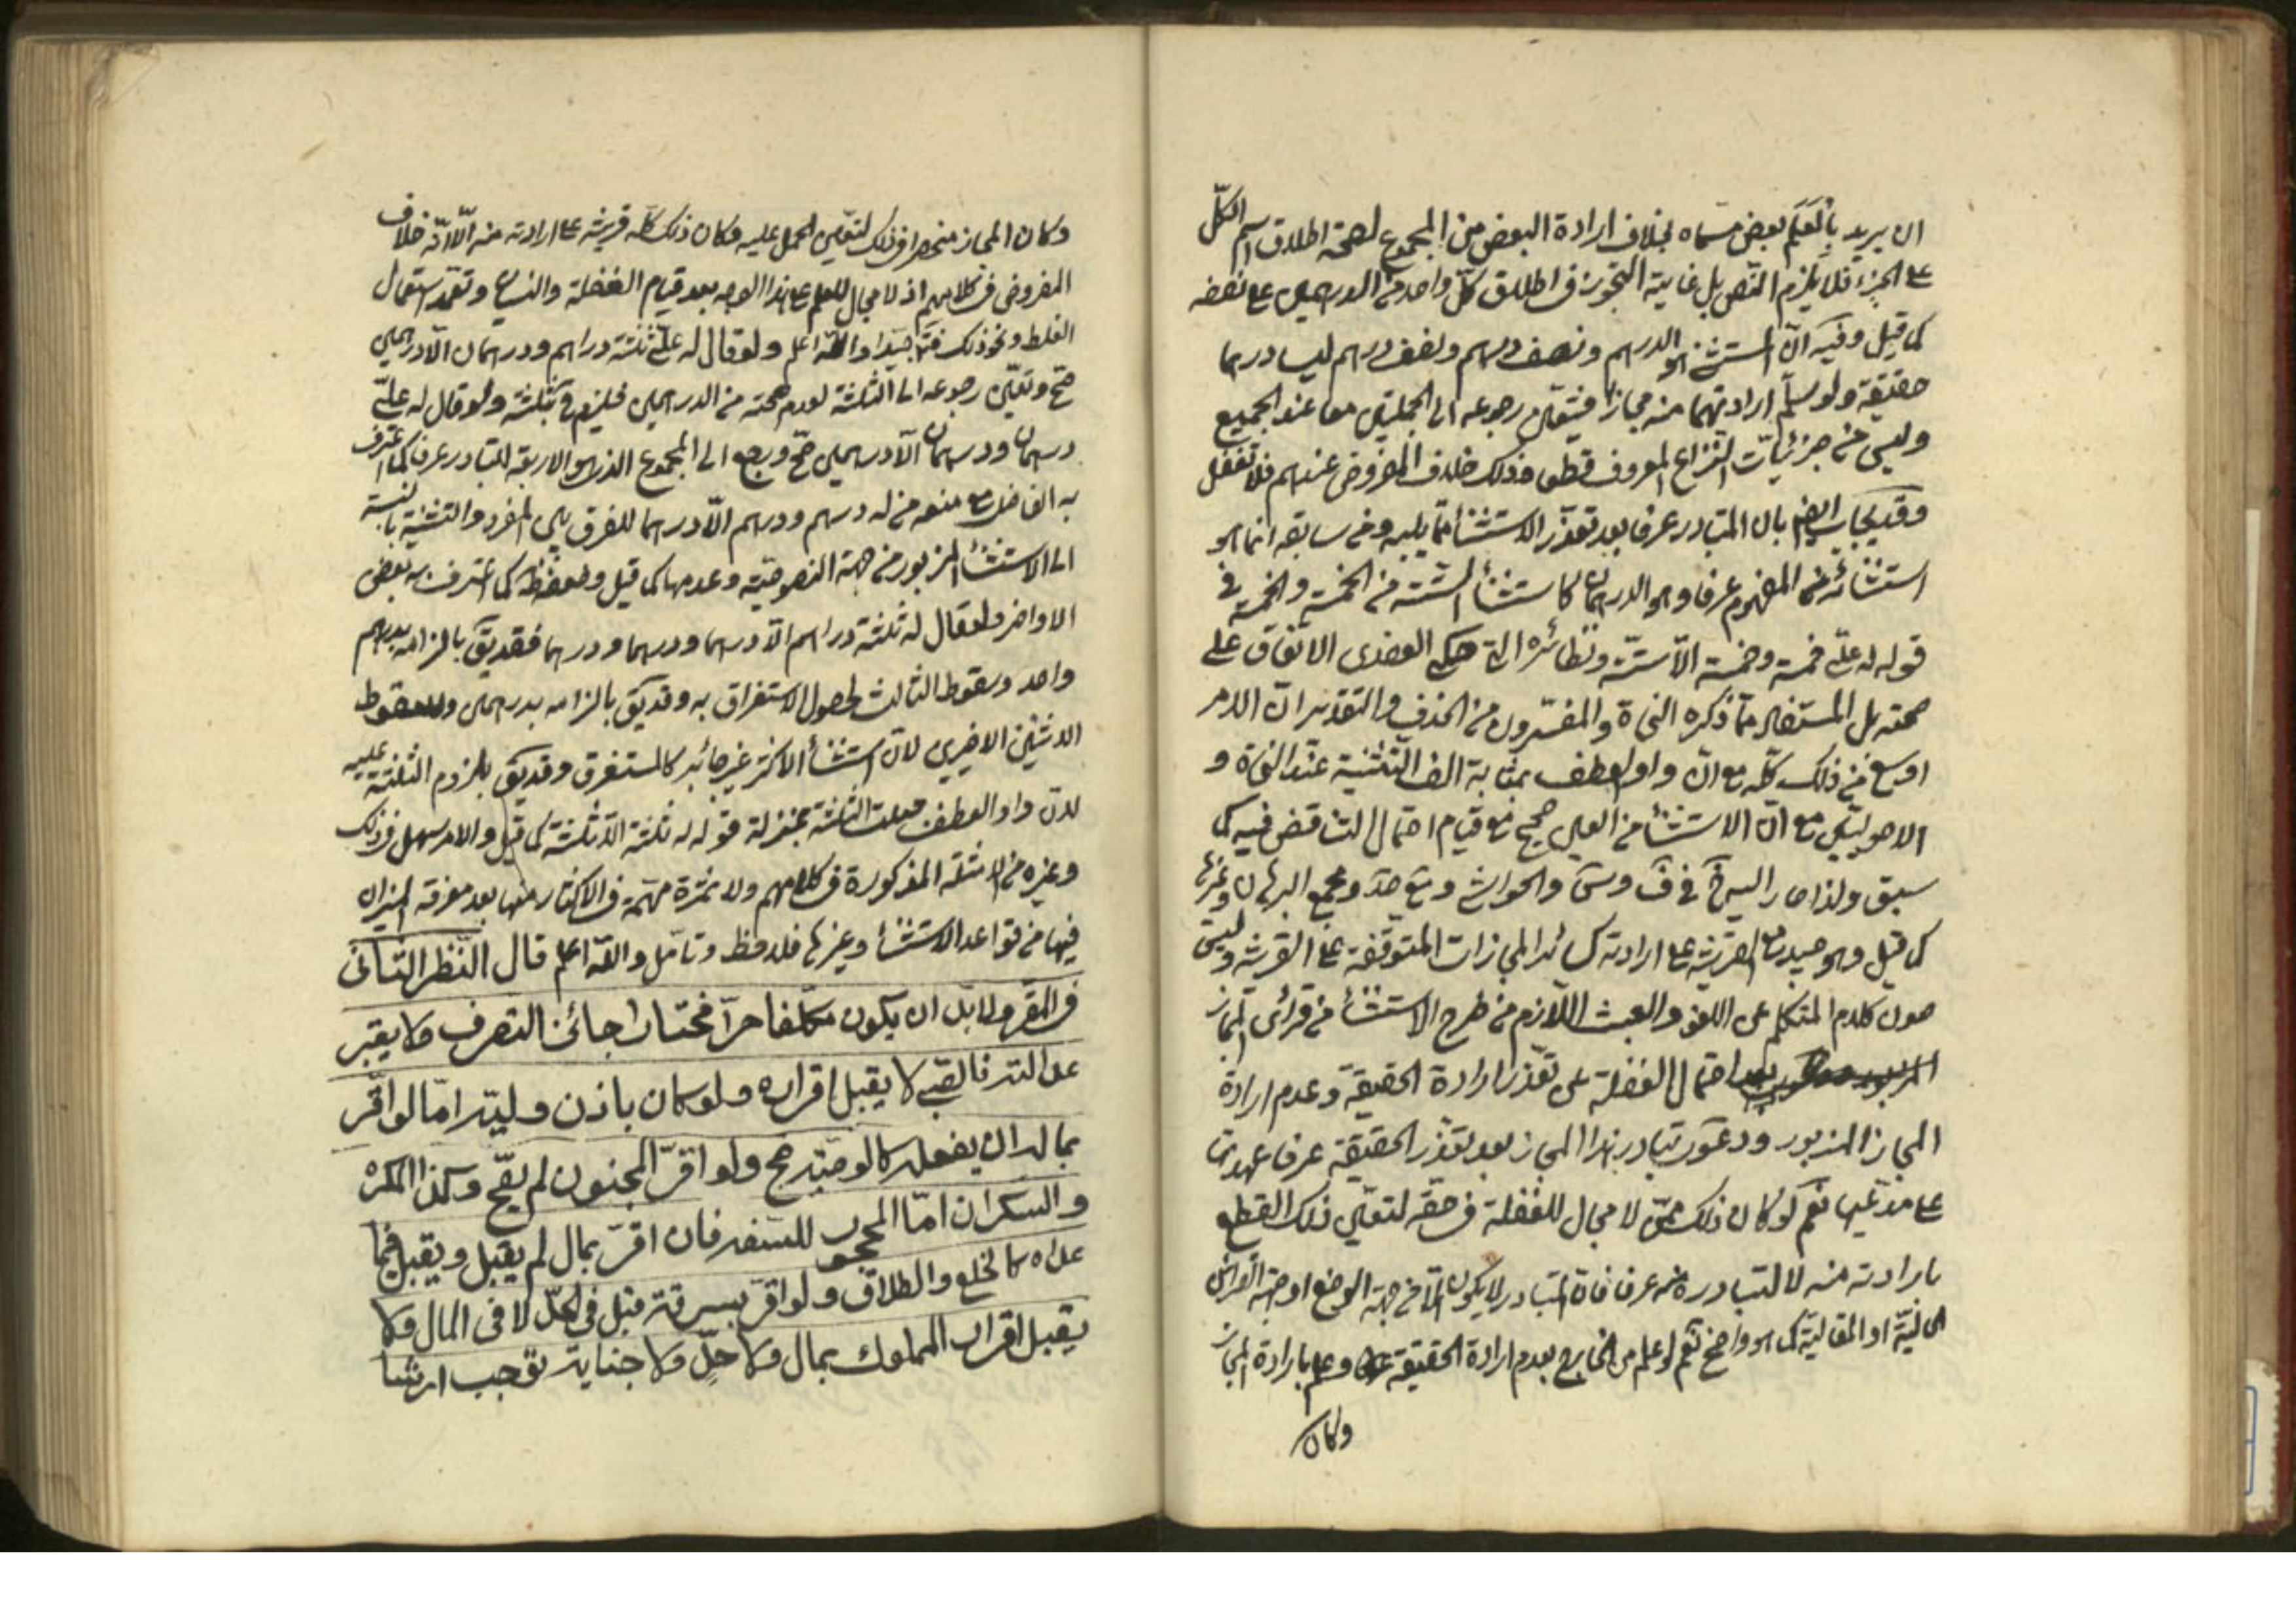 ان يريد بالعلم بعض مسماه بخلاف ارادة البعض من المجموع لصحة اطلاق اسم الكل
على الجزء فلا يلزم النص بل غاية التجوز في اطلاق كل واحد من الدرهمين على نصفه
كما قيل وفيه ان المستثنى هو الدرهم ونصف درهم ونصف درهم ليسا درهما
حقيقة ولو سلم ارادتهما منه مجازا فيتعين رجوعه الى الجملتين معا عند الجميع
وليس من جزئيات النزاع المعروف قطعا وذلك خلاف المفروض عندهم فلا تغفل
وقد يجاب ايضا بان المتبادر عرفا بعد تعذر الاستثناء مما يليه ومن سابقه انما هو
استثنائه من المفهوم عرفا وهو الدرهمان كاستثناء الستة من الخمسة والخمسة في
قوله له علي خمسة وخمسة الا ستة ونظائره التي حكى العضدي الاتفاق على
صحته بل المستفاد مما ذكره النحاة والمفسرون من الحذف والتقدير ان الامر
اوسع من ذلك كله مع ان واو العطف بمثابة الف التثنية عند النحاة و
الاصوليين مع ان الاستثناء من العين صحيح مع قيام احتمال التناقض فيه كما
سبق ولذا صار اليه في وف وس والحواشي ومع صد ومجمع البرهان وغيرها
كما قيل وهو جيد مع القرينة على ارادته كسائر المجازات المتوقفة على القرينة وليس
صون كلام المتكلم عن اللغو والعبث اللازم من طرح الاستثناء من قرائن المجاز
المزبور احتمال الغفلة عن تعذر ارادة الحقيقة وعدم ارادة
المجاز المزبور ودعوى تبادر هذا المجاز بعد تعذر الحقيقة عرفا عهدتها
على مدعيها نعم لو كان ذلك ممن لا مجال للغفلة في حقه لتعين ذلك للقطع
بارادته منه لا لتبادره منه عرفا فان التبادر لا يكون الا من جهة الوضع او جهة القرائن
الحالية او المقالية كما هو واضح نعم لو علم من الخارج بعدم ارادة الحقيقة وعلم بارادة المجاز
وكان
وكان المجاز منحصرا في ذلك لتعين الحمل عليه وكان ذلك كله قرينة على ارادته منه الا انه خلاف
المفروض في كلامهم اذ لا مجال للعلم على هذا الوجه بعد قيام الغفلة والنسيان وتعمد استعمال
الغلط ونحو ذلك فتامل جيدا والله اعلم ولو قال له علي ثلثة دراهم ودرهمان الا درهمين
صح وتعين رجوعه الى الثلثة لعدم صحته من الدرهمين فيلزم بثلثة ولو قال له علي
درهمان ودرهمان الا درهمين صح ورجع الى المجموع الذي هو الاربعة للتبادر عرفا كما اعترف
به الفاضل مع منعه من له درهم ودرهم الا درهما للفرق بين المفرد والتثنية بالنسبة
الى الاستثناء المزبور من جهة النصوصية وعدمها كما قيل وضعفه كما اعترف به بعض
الاواخر ولو قال له ثلثة دراهم الا درهما ودرهما ودرهما فقد يق بالزامه بدرهم
واحد وسقوط الثالث لحصول الاستغراق به وقد يق بالزامه بدرهمين وسقوط
الاثنين الاخيرين لان استثناء الاكثر غير جائز كالمستغرق وقد يق بلزوم الثلثة عليه
لان واو العطف جعلت الثلثة بمنزلة قوله له ثلثة الا ثلثة كما قيل والامر سهل في ذلك
وغيره من الامثلة المذكورة في كلامهم ولا ثمرة مهمة في الاكثار منها بعد معرفة الميزان
فيها من قواعد الاستثناء وغيرها فلاحظ وتامل والله اعلم قال النظر الثاني
في المقر ولا بد ان يكون مكلفا حرا مختارا جائز التصرف ولا يعتبر
عدالته فالصبي لا يقبل اقراره ولو كان باذن وليه اما لو اقر
بما له ان يفعله كالوصية صح ولو اقر المجنون لم يصح وكذا المكره
والسكران اما المحجور للسفه فان اقر بمال لم يقبل ويقبل فيما
عداه كالخلع والطلاق ولو اقر بسرقة قبل في الحد لا في المال ولا
يقبل اقرار المملوك بمال ولا حد ولا جناية توجب ارشا